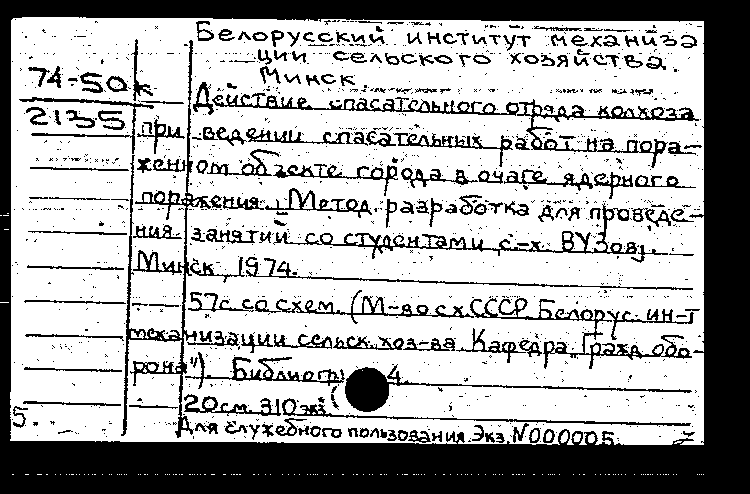 Белорусский институт механиза
ции сельского хозяйства.
Минск
74-50к
2135
Действие спасательного отряда колхоза
при ведении спасательных работ на пора-
женном объекте города в очаге ядерного
поражения. [Метод. разработка для проведе-
ния занятий со студентами с.-х. ВУЗов].
Минск, 1974.
57с. со схем. (М-во с х СССР. Белорус. ин-т
механизации сельск. хоз-ва. Кафедра "Гражд. обо-
рона"). Библиогр 4.
20см. 310экз.
Для служебного пользования. Экз. N000005.
5.